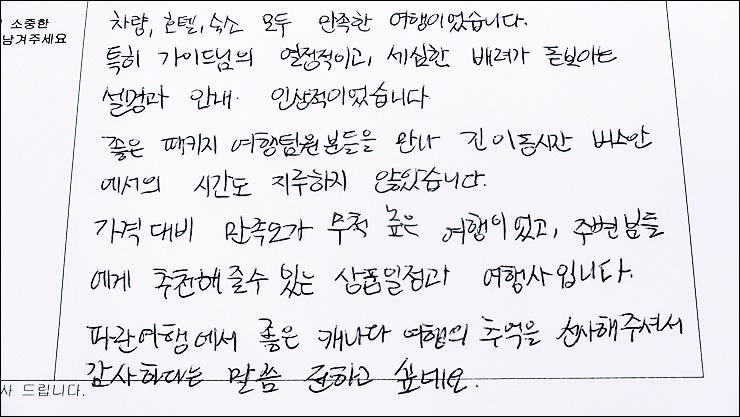 소중한
남겨주세요
차량, 호텔, 숙소 모두 만족한 여행이었습니다.
특히 가이드님의 열정적이고, 세심한 배려가 돋보이는
설명과 안내. 인상적이었습니다
좋은 패키지 여행팀원분들을 만나 긴 이동시간 버스안
에서의 시간도 지루하지 않았습니다.
가격대비 만족도가 무척 높은 여행이었고, 주변분들
에게 추천해줄수 있는 상품일정과 여행사입니다.
파란여행에서 좋은 캐나다 여행의 추억을 선사해주셔서
감사하다는 말씀 전하고 싶네요.
사 드립니다.